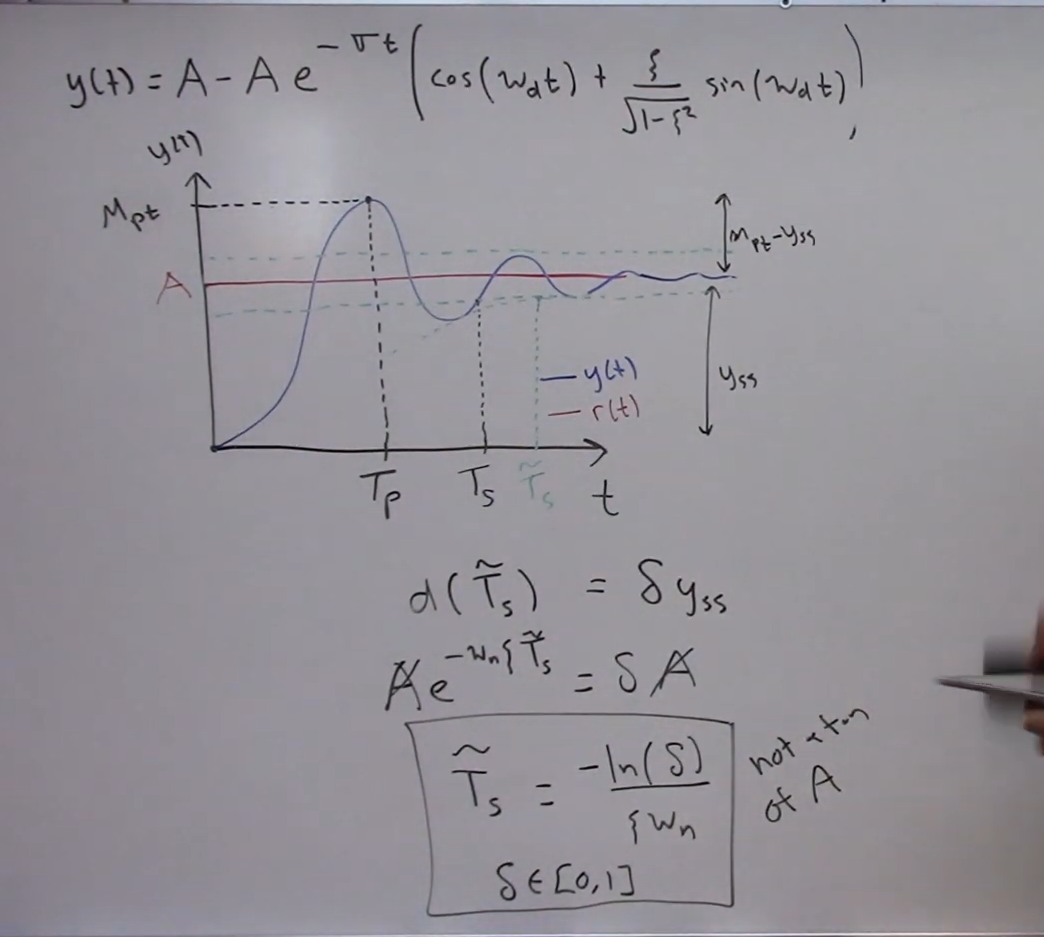 y(t) = A - A e^{-σt} ( cos(ω_d t) + ξ/√(1-ξ²) sin(ω_d t) ),
y(t)
M_pt
M_pt - y_ss
A
y_ss
— y(t)
— r(t)
T_p T_s T̃_s t
d(T̃_s) = δ y_ss
A e^{-ω_n ξ T̃_s} = δ A
T̃_s = -ln(δ)/(ξ ω_n)
δ ∈ [0,1]
not a
of A